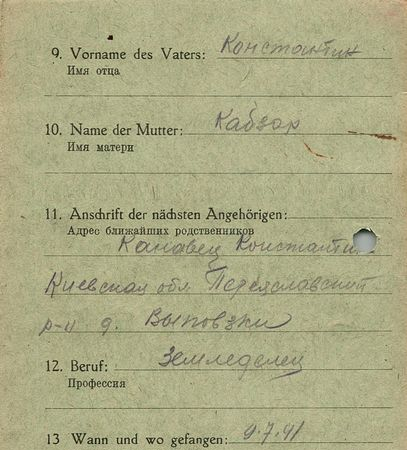 9. Vorname des Vaters: Константин
Имя отца
10. Name der Mutter: Кабзар
Имя матери
11. Anschrift der nächsten Angehörigen:
Адрес ближайших родственников
Канавец Константин
Киевская обл Переяславский
р-н д. Выповзки
12. Beruf: Земледелец
Профессия
13 Wann und wo gefangen: 9.7.41